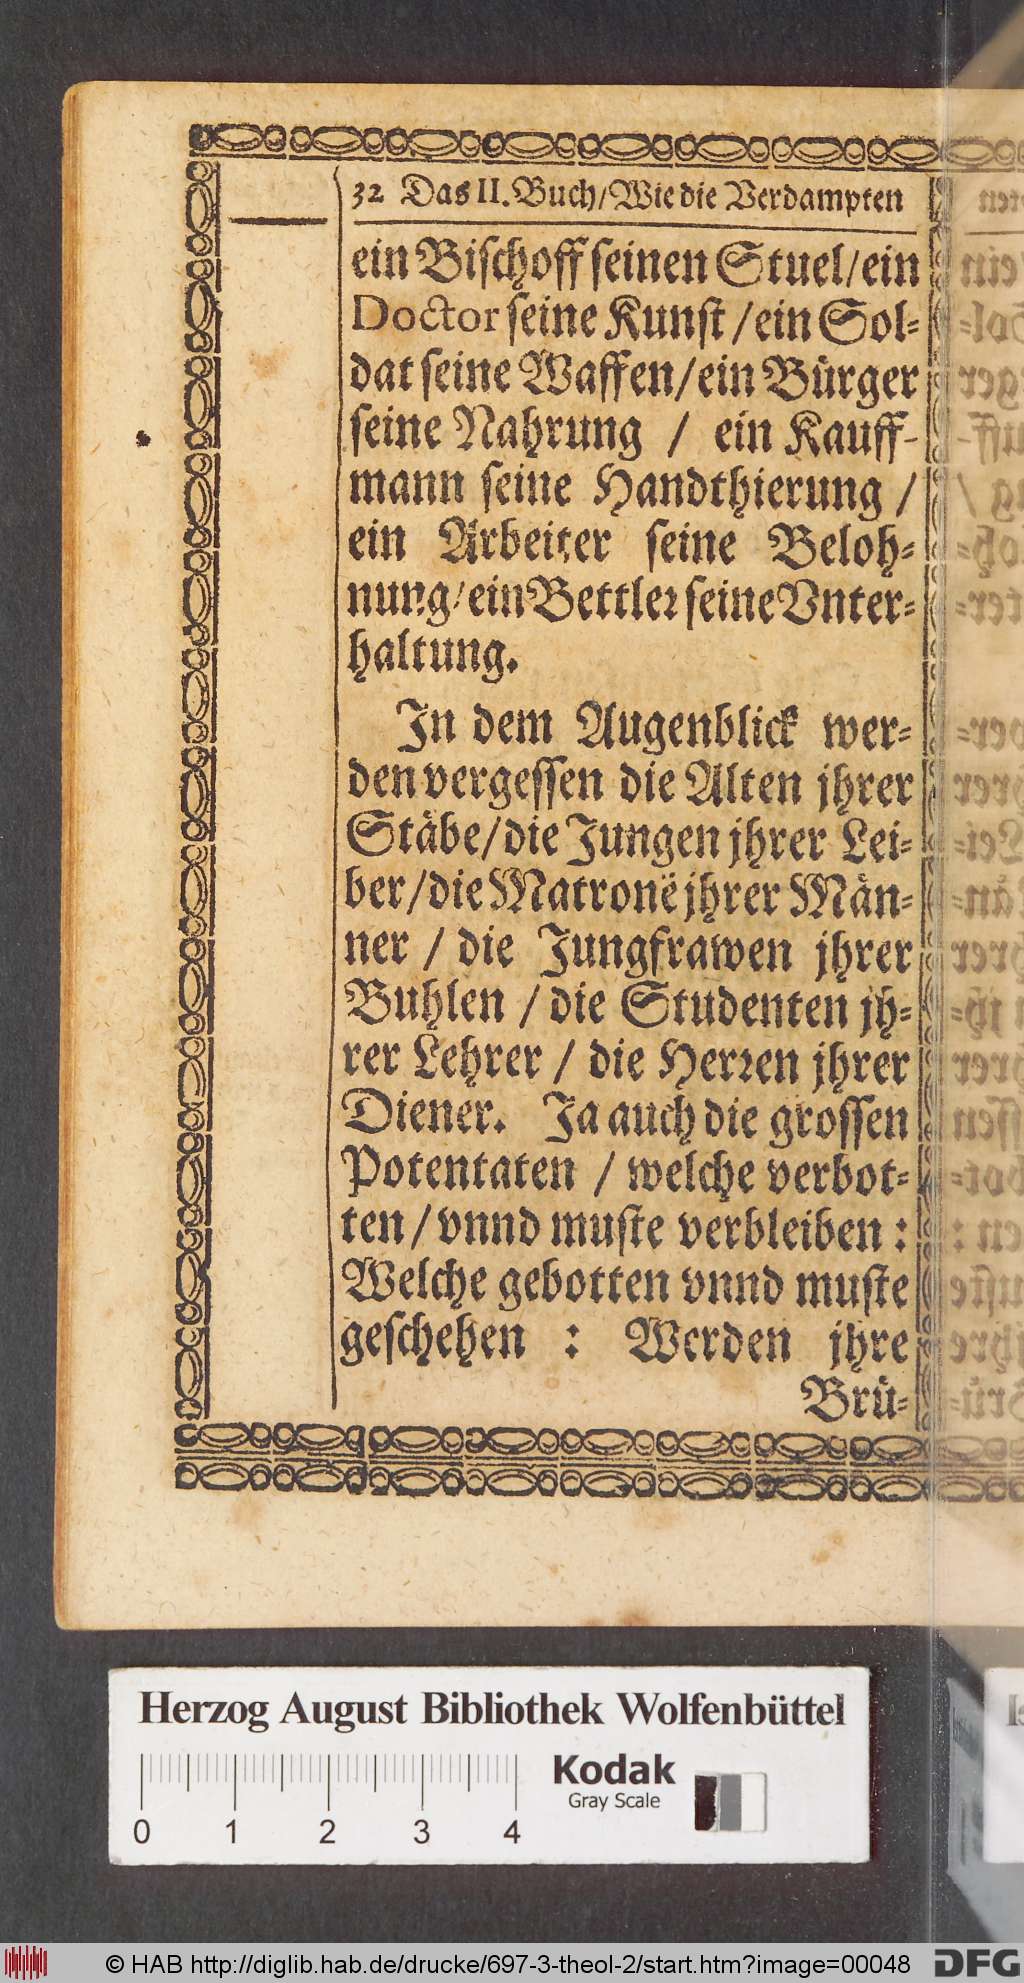 32 Das II. Buch/Wie die Verdampten
ein Bischoff seinen Stuel/ein
Doctor seine Kunst/ein Sol-
dat seine Waffen/ein Bürger
seine Nahrung / ein Kauff-
mann seine Handthierung /
ein Arbeiter seine Beloh-
nung/ein Bettler seine Vnter-
haltung.
In dem Augenblick wer-
den vergessen die Alten jhrer
Stäbe/die Jungen jhrer Lei-
ber/die Matronē jhrer Män-
ner / die Jungfrawen jhrer
Buhlen / die Studenten jh-
rer Lehrer / die Herren jhrer
Diener. Ja auch die grossen
Potentaten / welche verbot-
ten / vnnd muste verbleiben :
Welche gebotten vnnd muste
geschehen : Werden jhre
Brü-
Herzog August Bibliothek Wolfenbüttel
Kodak
Gray Scale
0 1 2 3 4
© HAB http://diglib.hab.de/drucke/697-3-theol-2/start.htm?image=00048
DFG